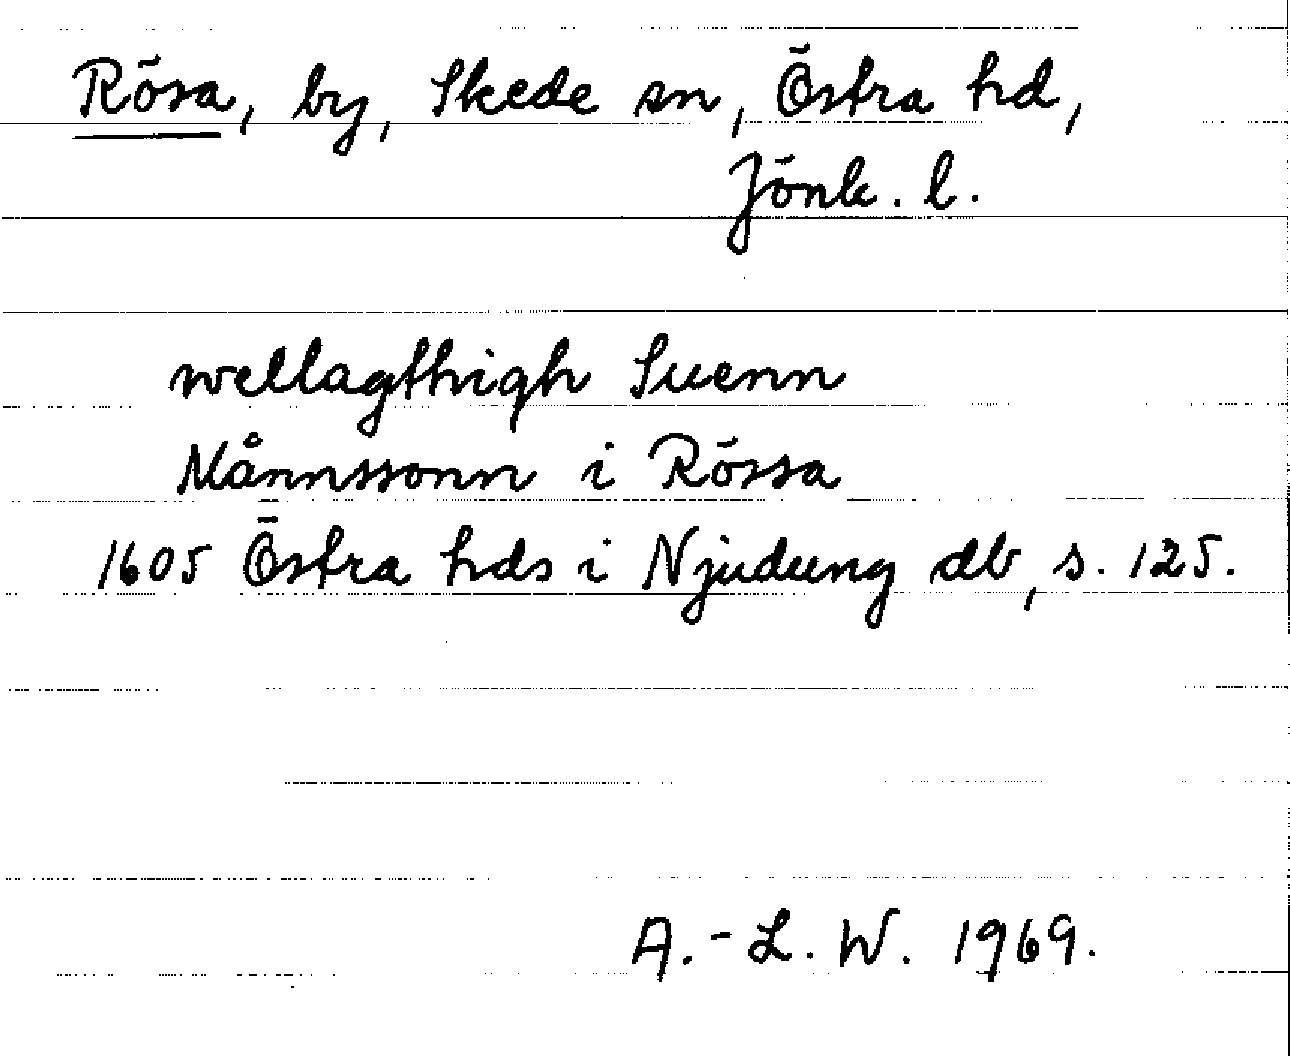 Rösa, by, Skede sn, Östra hd,
Jönk. l.
wellagthigh Suenn
Månnssonn i Rössa
1605 Östra hds i Njudung db, s. 125.
A.-L. W. 1969.